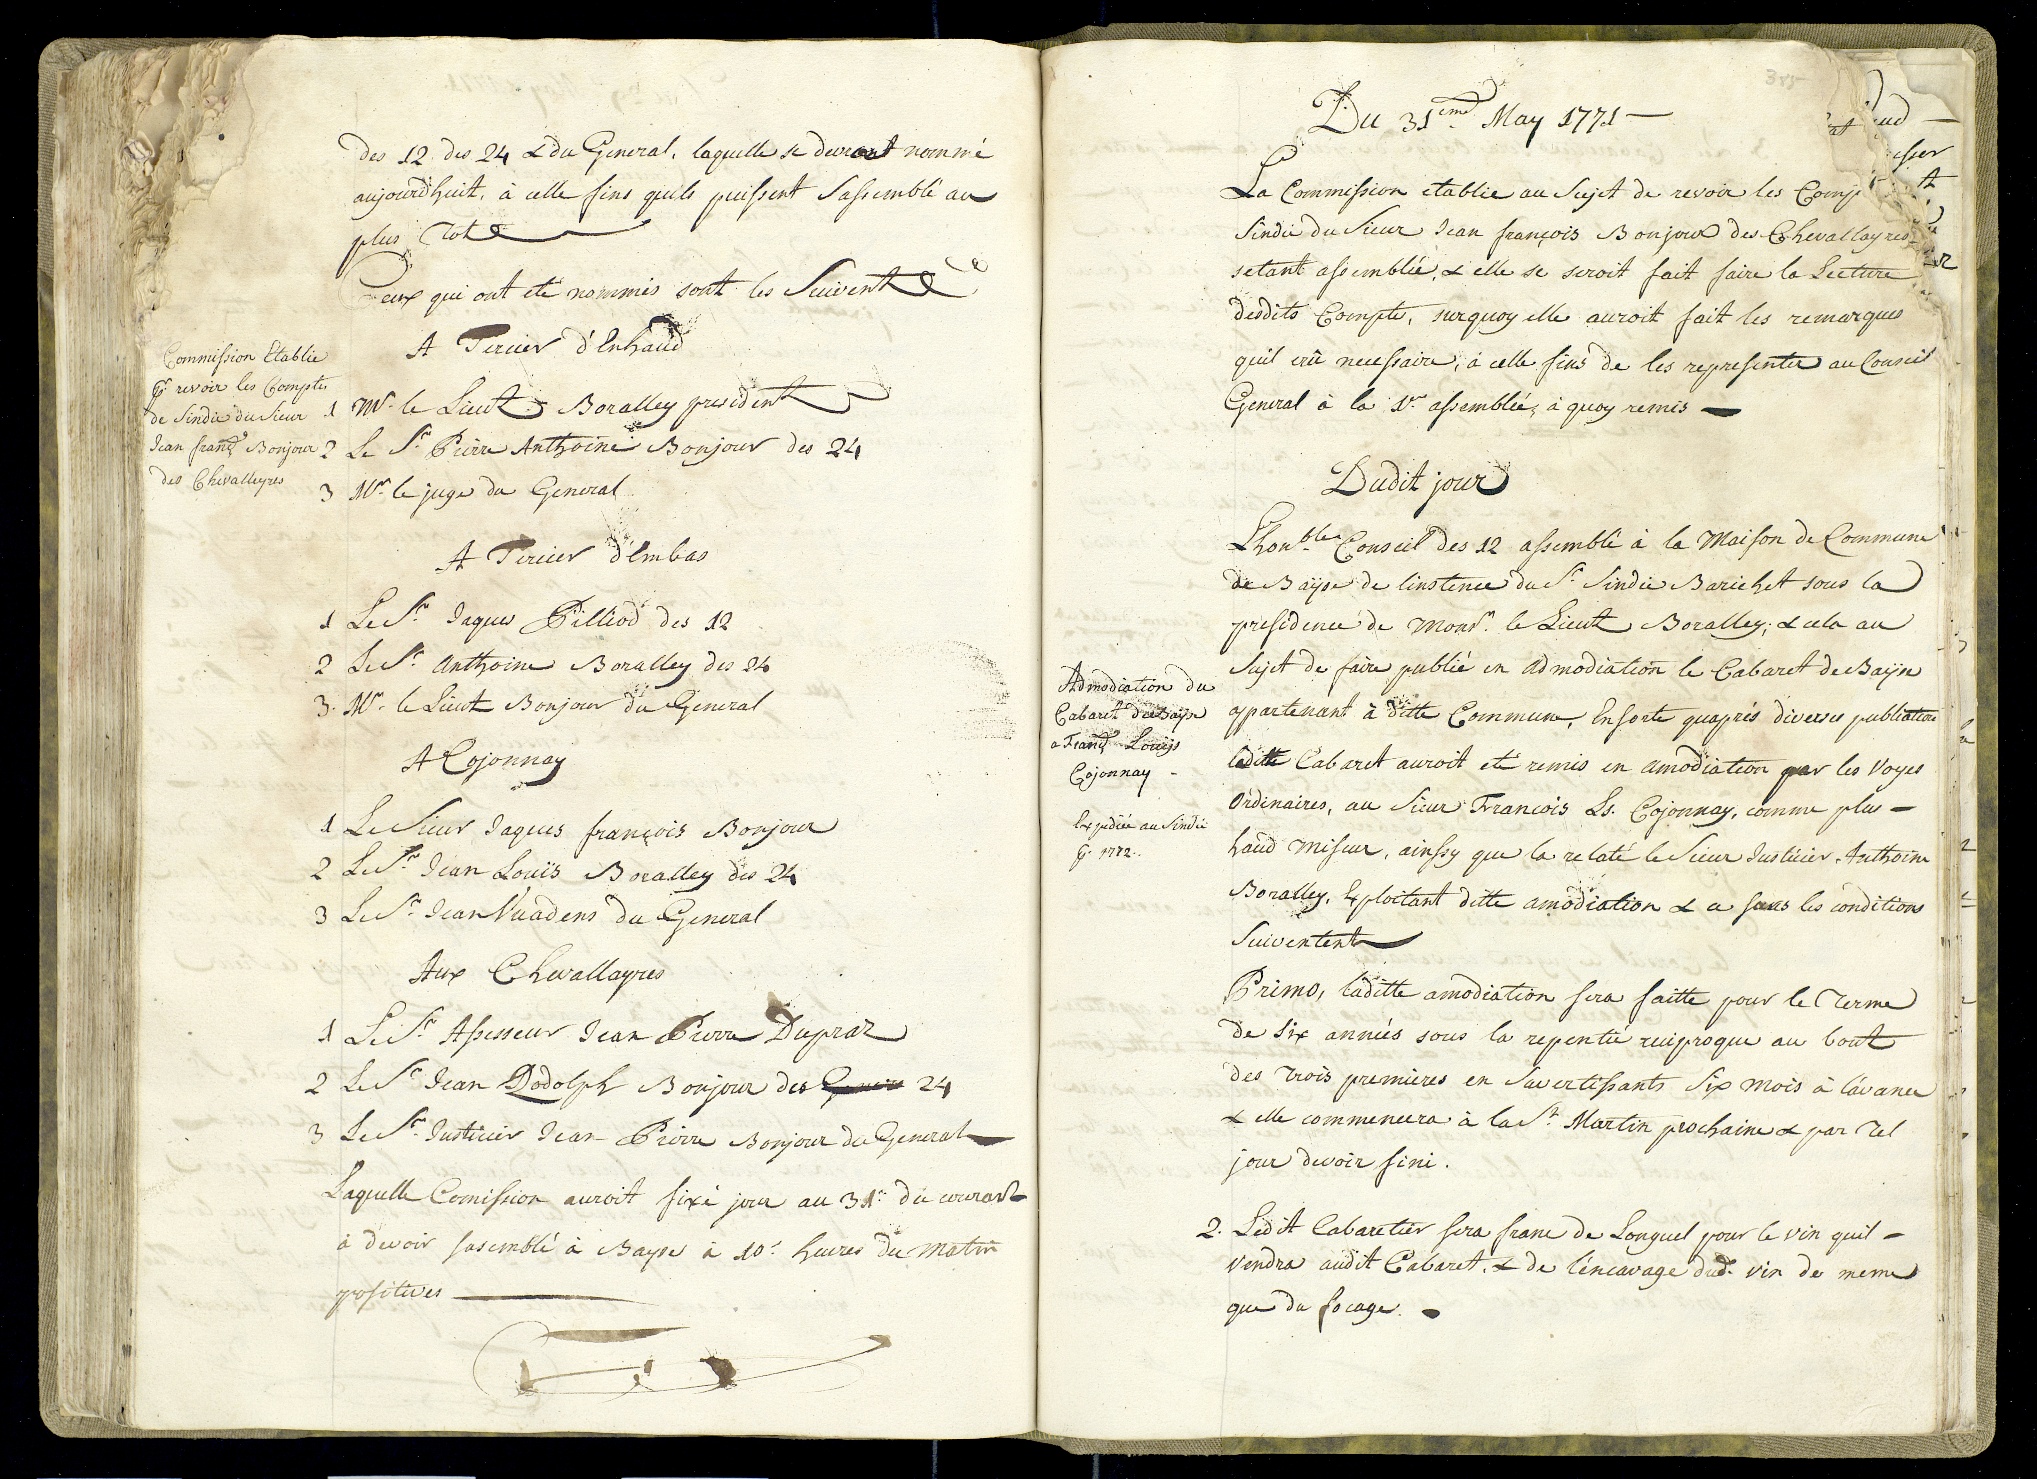 des 12 des 24 & du General, laquelle se devront nommé
aujourd'huit, à celle fins quils puissent Sassemblé au
plus Tot
Ceux qui ont eté nommés sont les Suivent
A Tercier d'Enhaud
Commission Etablie
pr revoir les Comptes
de Sindic du Sieur
Jean franç Bonjour
des Chevalleyres
1 Mr le Lieut Boralley president
2 Le Sr Pierre Anthoine Bonjour des 24
3 Mr le juge du General
A Tercier d'Embas
1 Le Sr Jaques Pilliod des 12
2 Le Sr Anthoine Boralley des 24
3. Mr le Lieut Bonjour du General
A Cojonnay
1 Le Sieur Jaques françois Bonjour
2 Le Sr Jean Louïs Boralley des 24
3 Le Sr Jean Vuadens du General
Aux Chevallayres
1 Le Sr Assesseur Jean Pierre Dupraz
2 Le Sr Jean Rodolph Bonjour des 24
3 Le Sr Justicier Jean Pierre Bonjour du General
Laquelle Comission auroit fixé jour au 31e du courant
à devoir sasemblé à Bayse à 10e heures du matin
positives
325
Du 31eme May 1771
La Commission etablie au Sujet de revoir les Comp
Sindic du Sieur Jean françois Bonjour des Chevallayres
setant assemblée, & elle se seroit fait faire la Lecture
desdits Compte, surquoy elle auroit fait les remarques
quil crû necessaire, à celle fins de les representer au Conseil
General à la 1re assemblée, à quoy remis
Dudit jour
L'honble Conseil des 12 assemblé à la Maison de Commune
de Baÿse de linstence du Sr Sindic Barichet sous la
presidence de Monsr. le Lieut Boralley; & cela au
Sujet de faire publié en admodiation le Cabaret de Baÿse
appartenant à ditte Commune, Ensorte quaprés diverses publication
laditte Cabaret auroit eté remis en amodiation par les Voyes
Ordinaires, au Sieur Francois Ls. Cojonnay, comme plus
haud miseur, ainssy que la relaté le Sieur Justicier Anthoine
Boralley, Exploitant ditte amodiation & a sous les conditions
Suiventent
Admodiation du
Cabaret de Baÿse
a Franç Louÿs
Cojonnay
Expediée au Sindic
pr 1772.
Primo, laditte amodiation sera faitte pour le Terme
de Six années sous la repentie reciproque au bout
des Trois premieres en Savertissants Six mois à lávance
& elle commencera à la St Martin prochaine & par Tel
jour devoir fini.
2. Ledit Cabaretier sera franc de Longuel pour le vin quil
vendra audit Cabaret, & de léncavage dud. vin de meme
que du focage.